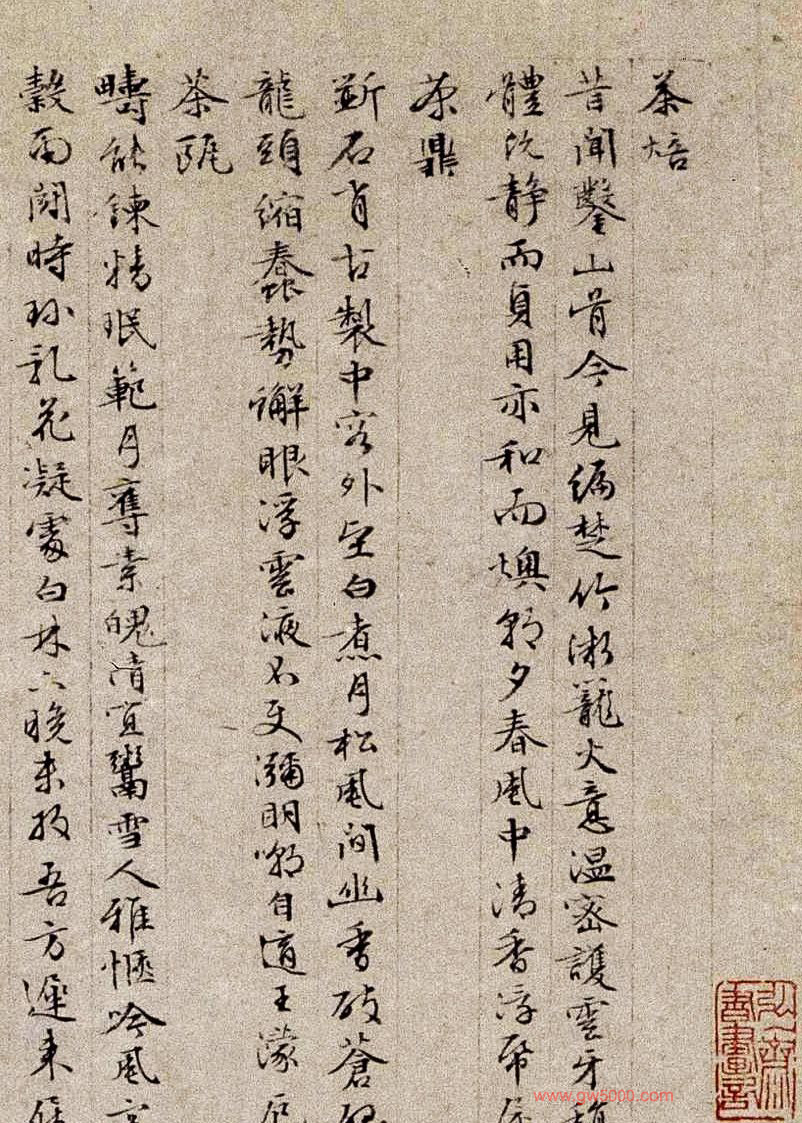 茶焙
昔聞鑿山骨今見編楚竹微籠火意温密護雲牙
體既静而貞用亦和而燠朝夕春風中清香浮
茶鼎
斵石肖古製中容外堅白煮月松風間幽香破蒼
龍頭縮蠢勢蟹眼浮雲液不使彌明嘲自適王濛
茶甌
疇能鍊精珉範月奪素魄清宜鬻雪人雅愜吟風
穀雨鬭時珍乳花凝處白林下晚来收吾方遲来
弘齋
書畫記
www.gw5000.com